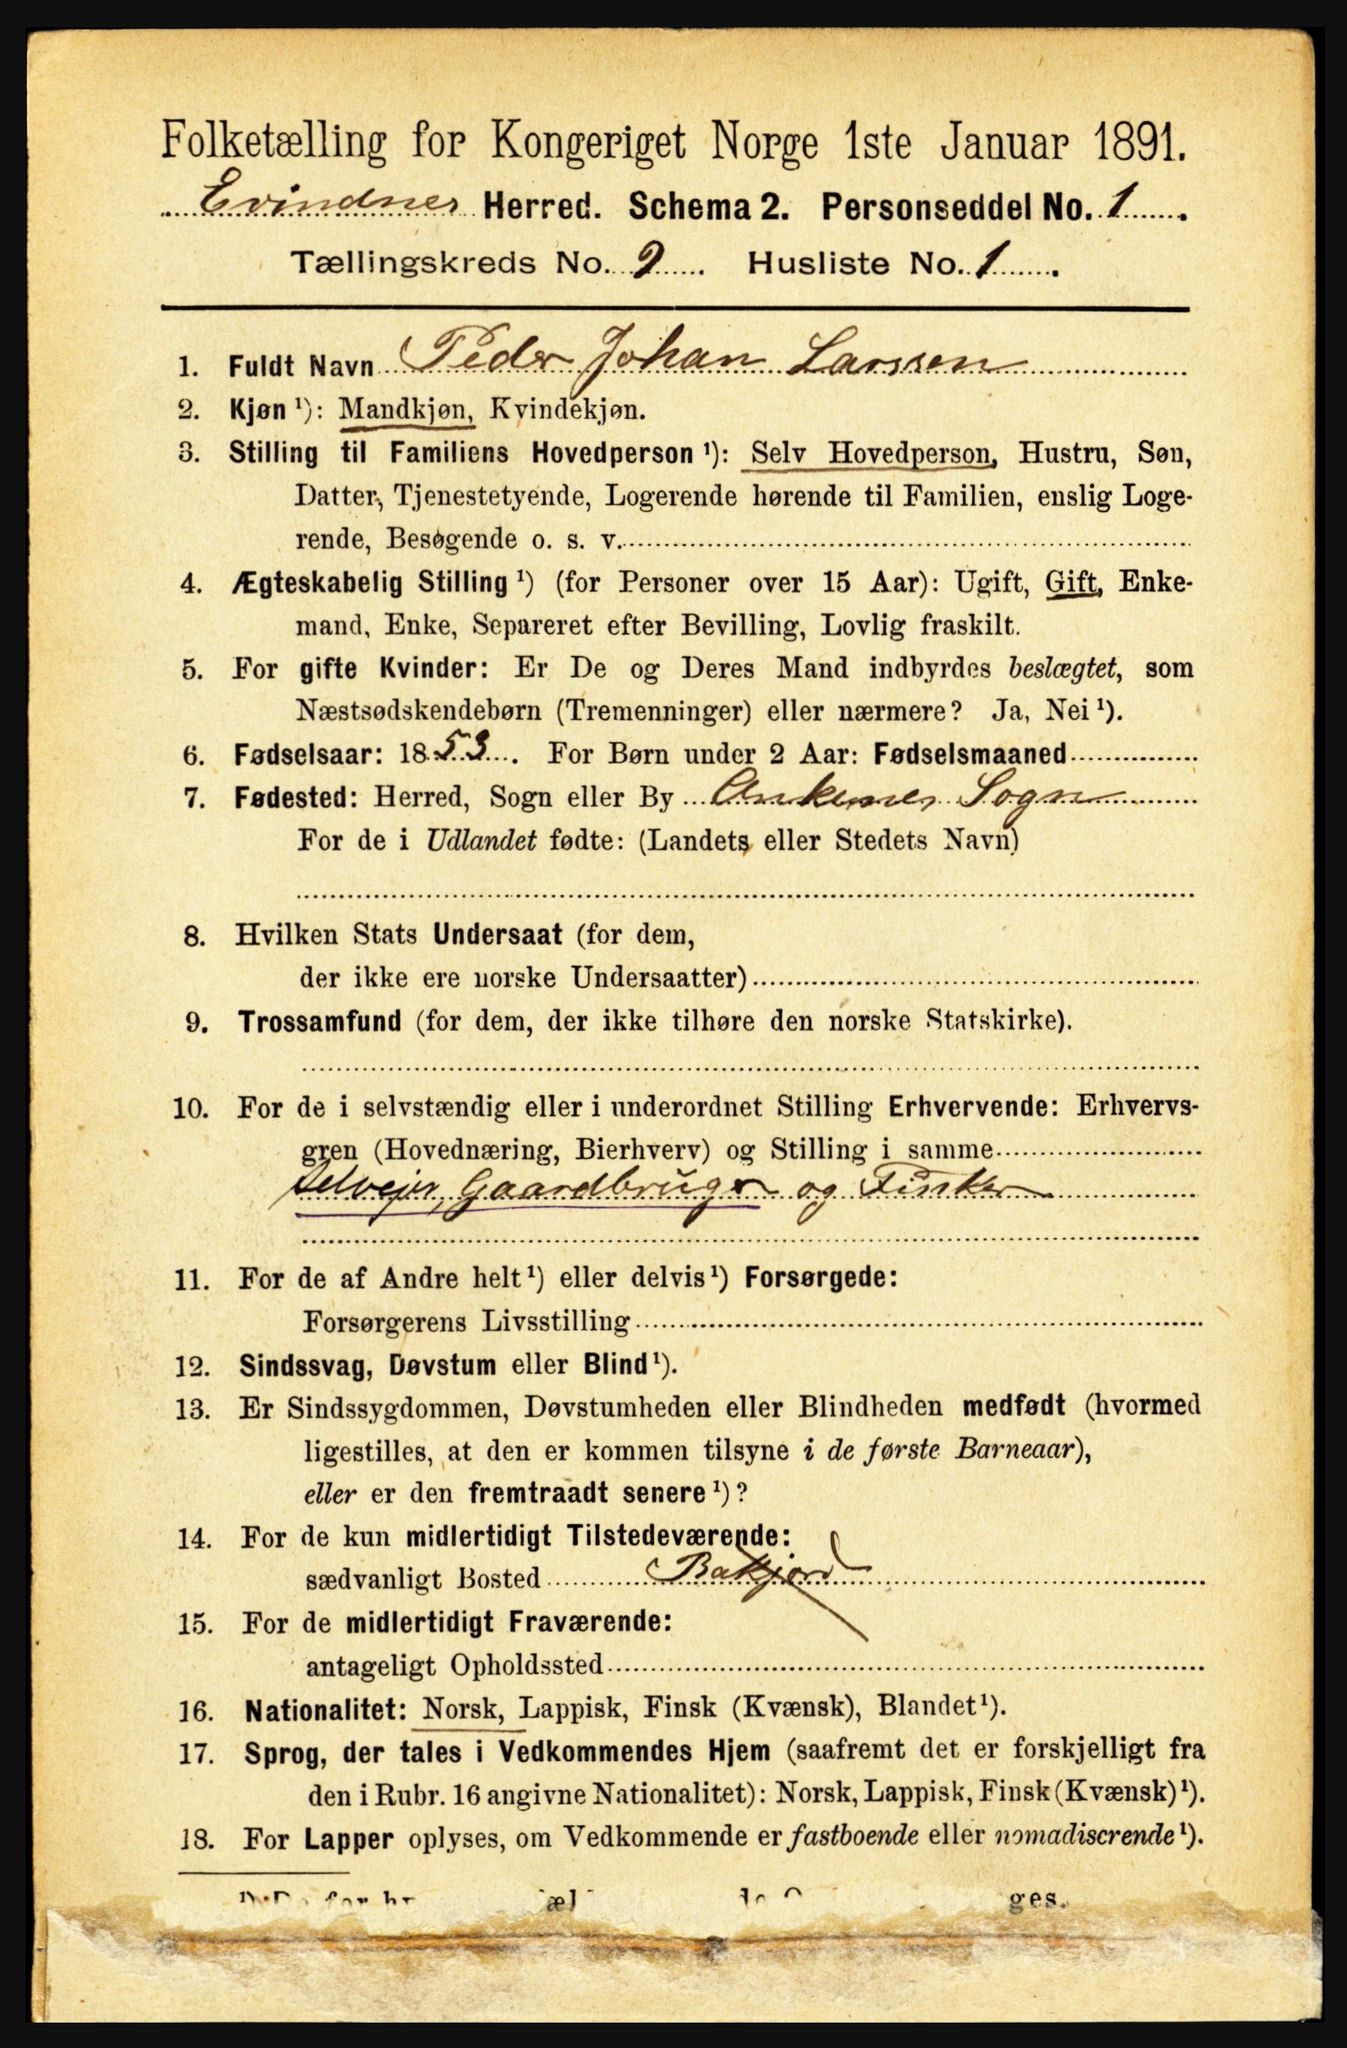 Folketælling for Kongeriget Norge 1ste Januar 1891.
Evindnes Herred. Schema 2. Personseddel No. 1.
Tællingskreds No. 9. Husliste No. 1.
1. Fuldt Navn Peder Johan Larssen
2. Kjøn ¹): Mandkjøn, Kvindekjøn.
3. Stilling til Familiens Hovedperson ¹): Selv Hovedperson, Hustru, Søn,
Datter, Tjenestetyende, Logerende hørende til Familien, enslig Loge-
rende, Besøgende o. s. v.
4. Ægteskabelig Stilling ¹) (for Personer over 15 Aar): Ugift, Gift, Enke-
mand, Enke, Separeret efter Bevilling, Lovlig fraskilt.
5. For gifte Kvinder: Er De og Deres Mand indbyrdes beslægtet, som
Næstsødskendebørn (Tremenninger) eller nærmere? Ja, Nei ¹).
6. Fødselsaar: 1853. For Børn under 2 Aar: Fødselsmaaned
7. Fødested: Herred, Sogn eller By Ankenes Sogn
For de i Udlandet fødte: (Landets eller Stedets Navn)
8. Hvilken Stats Undersaat (for dem,
der ikke ere norske Undersaatter)
9. Trossamfund (for dem, der ikke tilhøre den norske Statskirke).
10. For de i selvstændig eller i underordnet Stilling Erhvervende: Erhvervs-
gren (Hovednæring, Bierhverv) og Stilling i samme
Selvejer, Gaardbruger og Fisker
11. For de af Andre helt ¹) eller delvis ¹) Forsørgede:
Forsørgerens Livsstilling
12. Sindssvag, Døvstum eller Blind ¹).
13. Er Sindssygdommen, Døvstumheden eller Blindheden medfødt (hvormed
ligestilles, at den er kommen tilsyne i de første Barneaar),
eller er den fremtraadt senere ¹)?
14. For de kun midlertidigt Tilstedeværende:
sædvanligt Bosted Bakjord
15. For de midlertidigt Fraværende:
antageligt Opholdssted
16. Nationalitet: Norsk, Lappisk, Finsk (Kvænsk), Blandet ¹).
17. Sprog, der tales i Vedkommendes Hjem (saafremt det er forskjelligt fra
den i Rubr. 16 angivne Nationalitet): Norsk, Lappisk, Finsk (Kvænsk) ¹).
18. For Lapper oplyses, om Vedkommende er fastboende eller nomadiserende ¹).
ges.